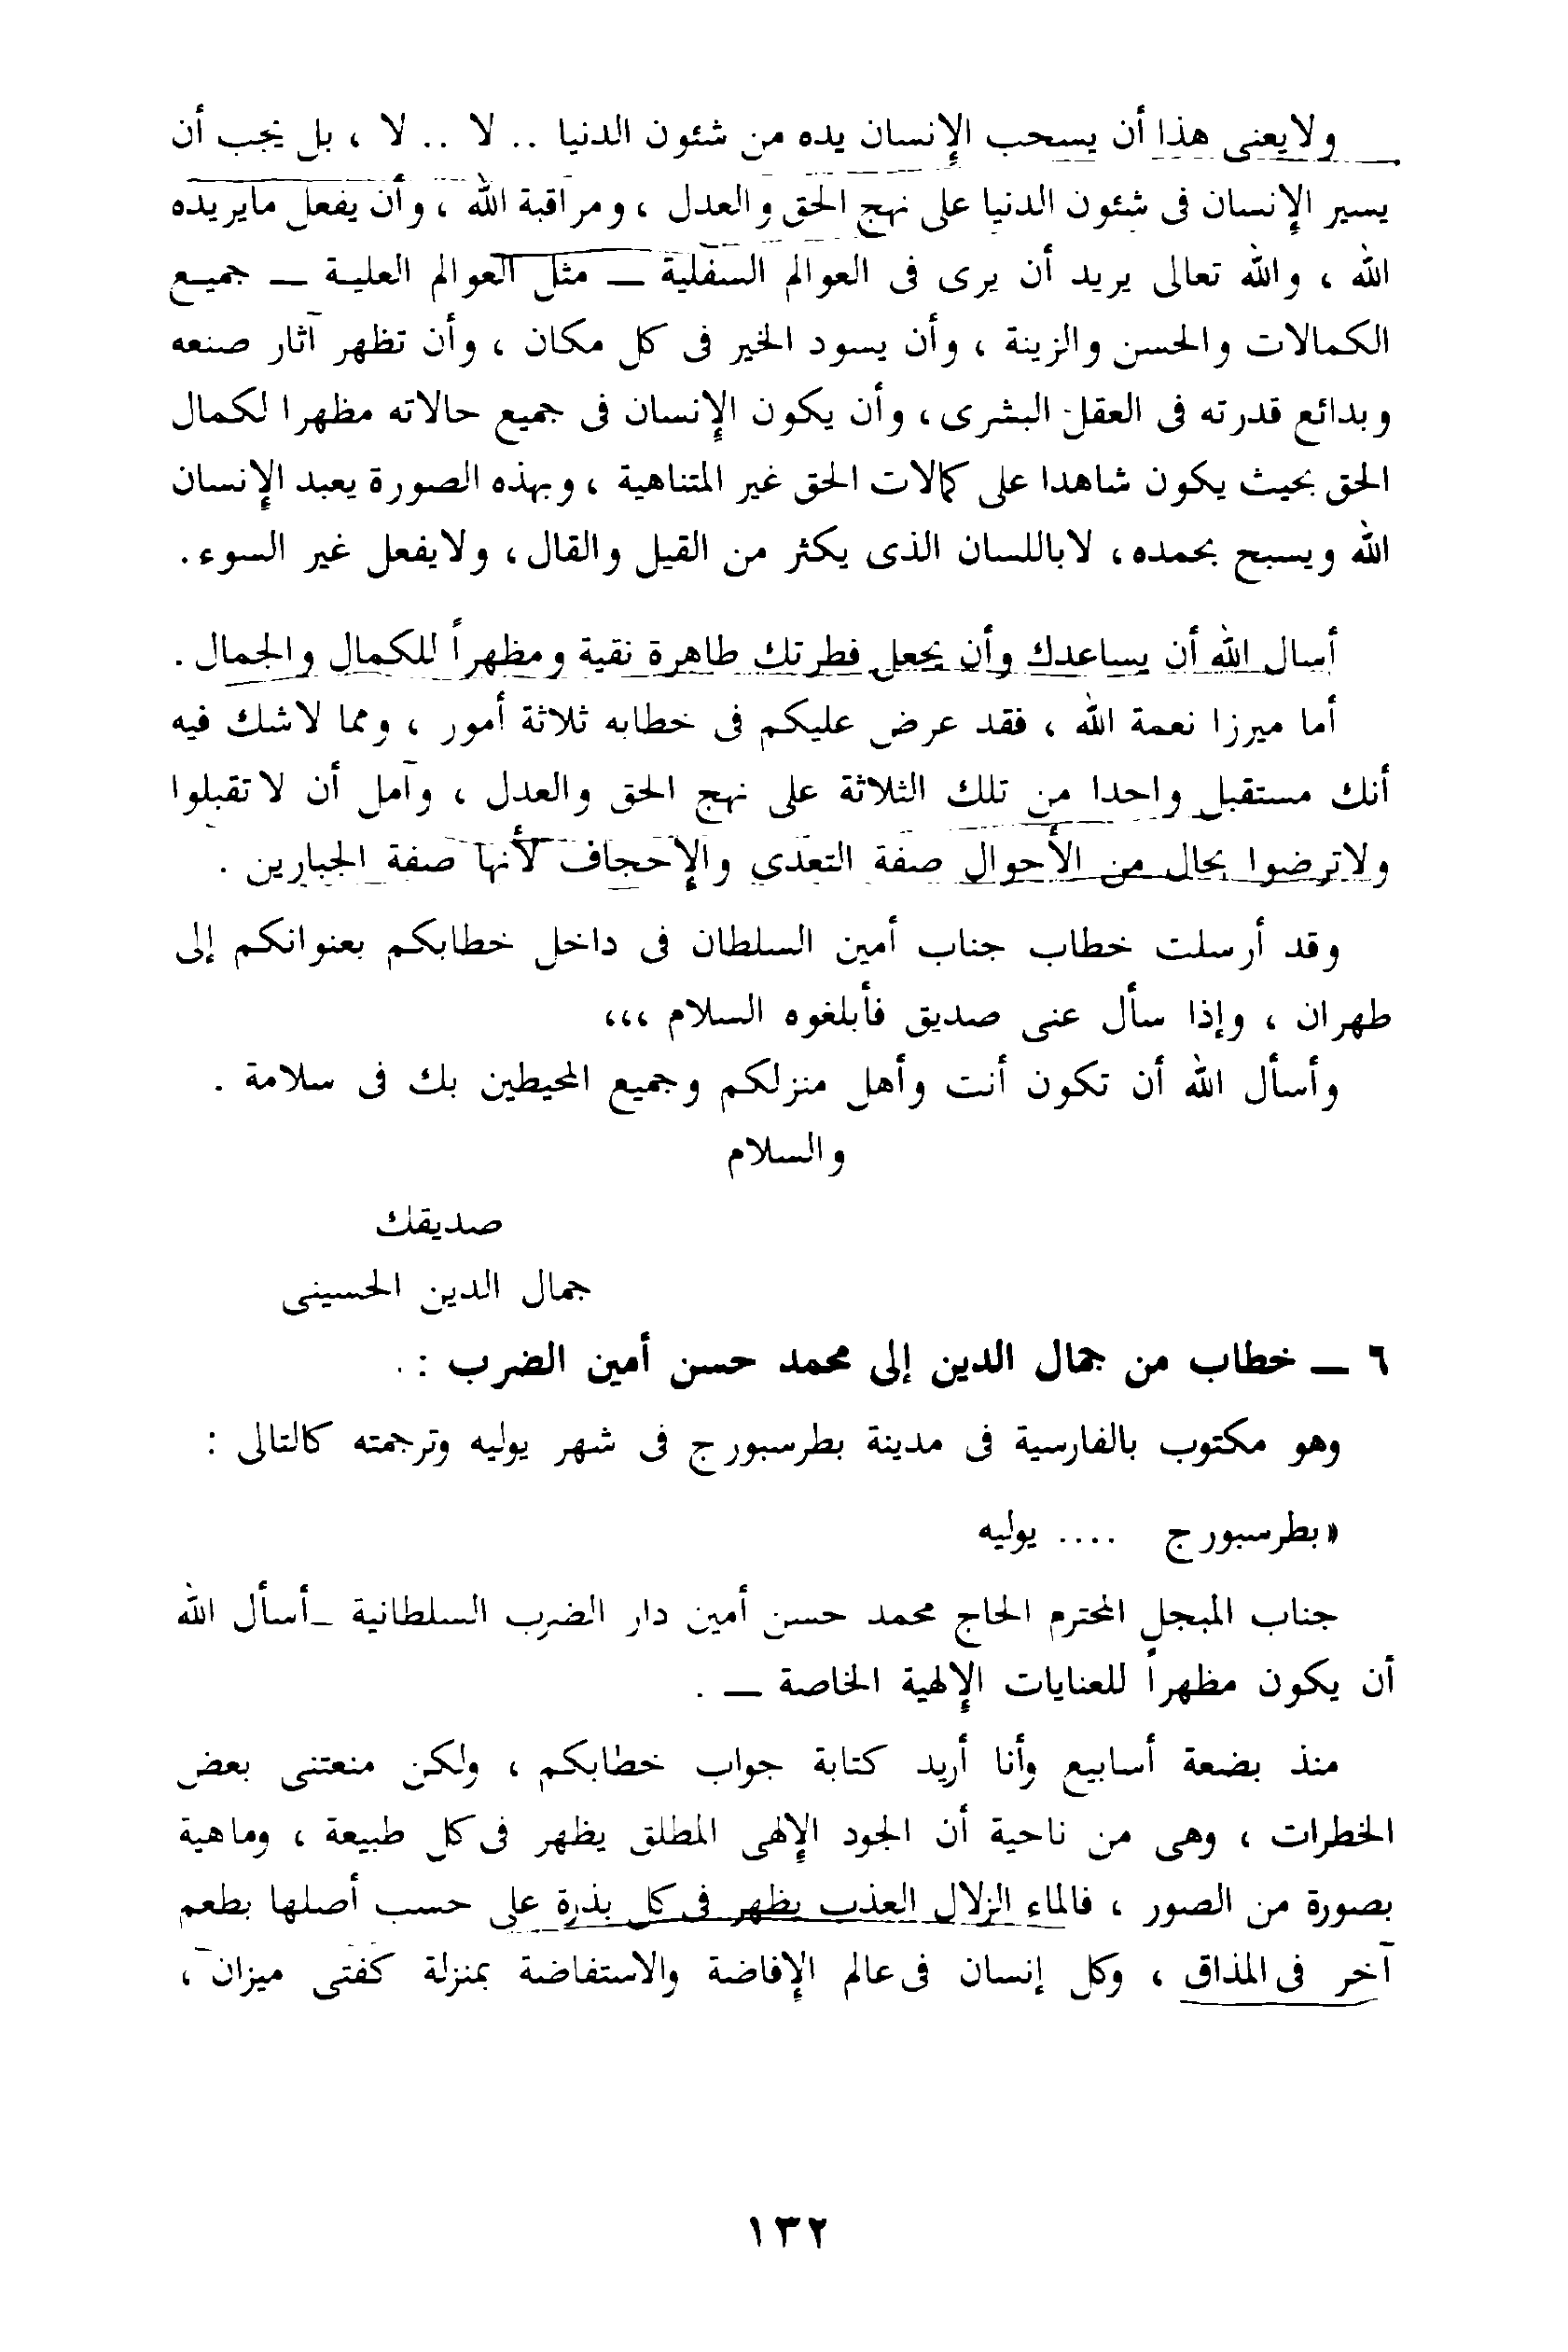 ولايعنى هذا أن يسحب الإنسان يده من شئون الدنيا .. لا .. لا ، بل يجب أن
يسير الإنسان فى شئون الدنيا على نهج الحق والعدل ، ومراقبة الله ، وأن يفعل مايريده
الله ، والله تعالى يريد أن يرى فى العوالم السفلية ــ مثل العوالم العليـة ــ جميـع
الكمالات والحسن والزينة ، وأن يسود الخير فى كل مكان ، وأن تظهر آثار صنعه
وبدائع قدرته فى العقل البشرى ، وأن يكون الإنسان فى جميع حالاته مظهرا لكمال
الحق بحيث يكون شاهدا على كمالات الحق غير المتناهية ، وبهذه الصورة يعبد الإنسان
الله ويسبح بحمده ، لاباللسان الذى يكثر من القيل والقال ، ولايفعل غير السوء .
أسال الله أن يساعدك وأن يجعل فطرتك طاهرة نقية ومظهراً للكمال والجمال .
أما ميرزا نعمة الله ، فقد عرض عليكم فى خطابه ثلاثة أمور ، ومما لاشك فيه
أنك مستقبل واحدا من تلك الثلاثة على نهج الحق والعدل ، وآمل أن لاتقبلوا
ولاترضوا بحال من الأحوال صفة التعدى والإحجاف لأنها صفة الجبارين .
وقد أرسلت خطاب جناب أمين السلطان فى داخل خطابكم بعنوانكم إلى
طهران ، وإذا سأل عنى صديق فأبلغوه السلام ،،،
وأسأل الله أن تكون أنت وأهل منزلكم وجميع المحيطين بك فى سلامة .
والسلام
صديقك
جمال الدين الحسينى
٦ ــ خطاب من جمال الدين إلى محمد حسن أمين الضرب : .
وهو مكتوب بالفارسية فى مدينة بطرسبورج فى شهر يوليه وترجمته كالتالى :
«بطرسبورج .... يوليه
جناب المبجل المحترم الحاج محمد حسن أمين دار الضرب السلطانية ــأسأل الله
أن يكون مظهراً للعنايات الإلهية الخاصة ــ .
منذ بضعة أسابيع وأنا أريد كتابة جواب خطابكم ، ولكن منعتنى بعض
الخطرات ، وهى من ناحية أن الجود الإلهى المطلق يظهر فى كل طبيعة ، وماهية
بصورة من الصور ، فالماء الزلال العذب يظهر فى كل بذرة على حسب أصلها بطعم
آخر فى المذاق ، وكل إنسان فى عالم الإفاضة والاستفاضة بمنزلة كفتى ميزان ،
١٣٢